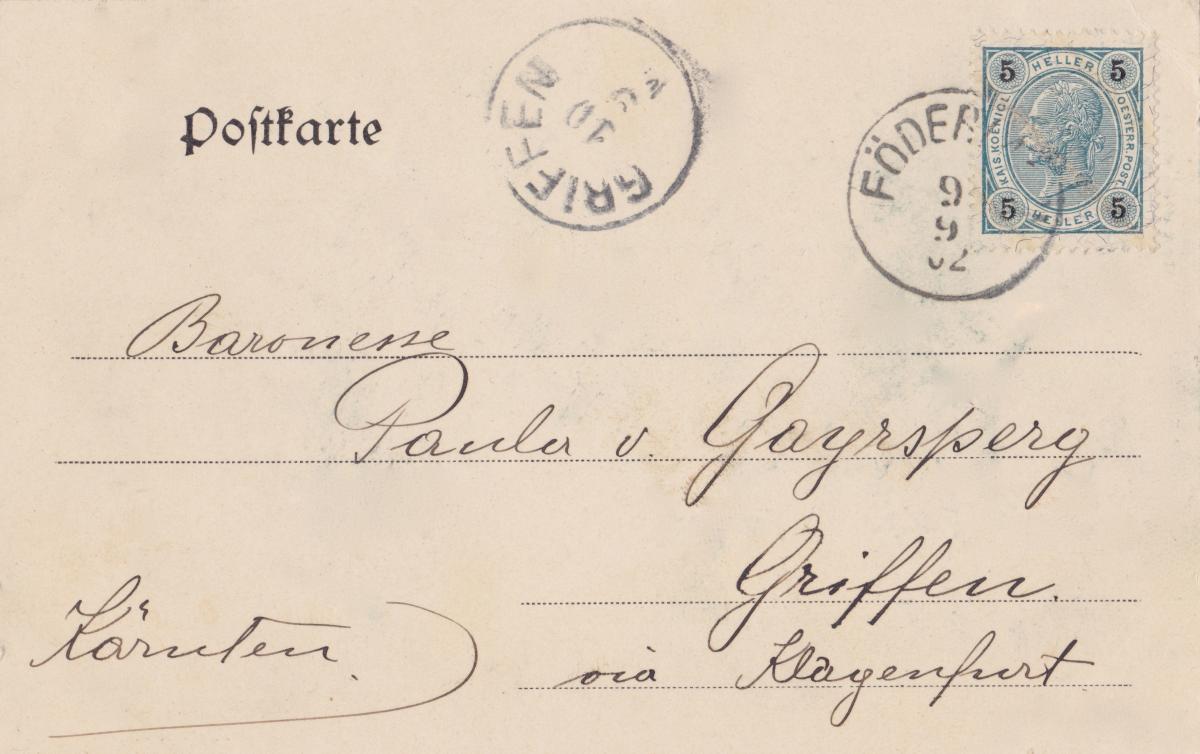 Postkarte
GRIFFEN
10
9
FÖDER
9
9
02
5 HELLER 5
KAIS. KOENIGL. OESTERR. POST.
5 HELLER 5
Baronesse
Paula v. Gayrsperg
Griffen.
via Klagenfurt
Kärnten.